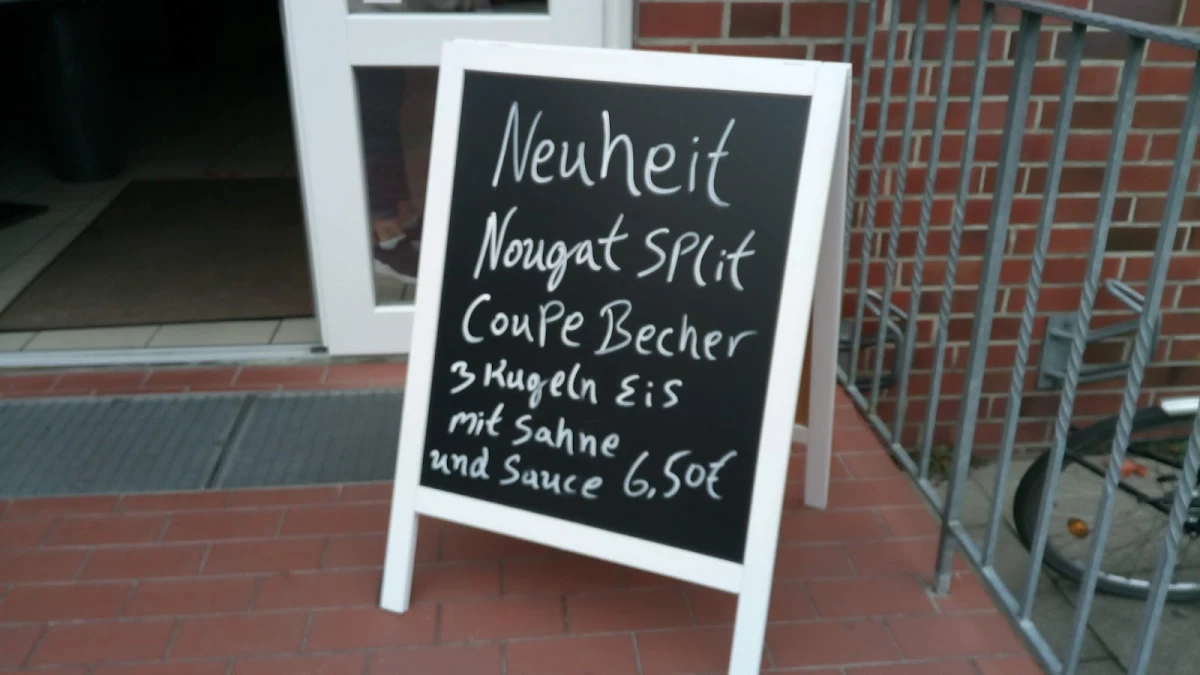 Neuheit
Nougat Split
Coupe Becher
3 Kugeln Eis
mit Sahne
und Sauce 6,50€